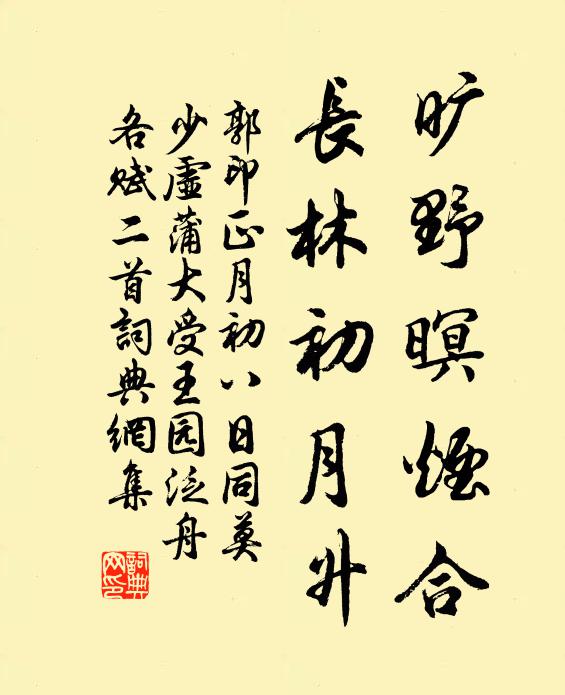 旷野暝煙合
長林初月升
郭印正月初八日同莫
少虛蒲大受王园泛舟
各赋二首詞典網集
詞典網印